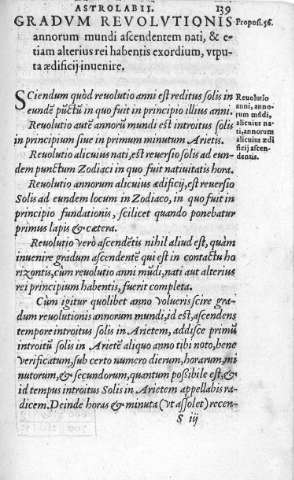 ASTROLABII. 139
GRADVM REVOLVTIONIS Proposi.56.
annorum mundi ascendentem nati, & e-
tiam alterius rei habentis exordium, vtpu-
ta ædificij inuenire.
Sciendum quòd reuolutio anni est reditus solis in
eundē pūctū in quo fuit in principio illius anni.
Reuolutio autē annorū mundi est introitus solis
in principium siue in primum minutum Arietis.
Reuolutio alicuius nati, est reuersio solis ad eun-
dem punctum Zodiaci in quo fuit natiuitatis hora.
Reuolutio annorum alicuius ædificij, est reuersio
Solis ad eundem locum in Zodiaco, in quo fuit in
principio fundationis, scilicet quando ponebatur
primus lapis & cætera.
Reuolutio verò ascendētis nihil aliud est, quàm
inuenire gradum ascendentē qui est in contactu ho
rizontis, cum reuolutio anni mūdi, nati aut alterius
rei principium habentis, fuerit completa.
Cùm igitur quolibet anno volueris scire gra-
dum reuolutionis annorum mundi, id est, ascendens
tempore introitus solis in Arietem, addisce primū
introitū solis in Arietē aliquo anno tibi noto, bene
verificatum, sub certo numero dierum, horarum, mi
nutorum, & secundorum, quantum poßibile est, &
id tempus introitus Solis in Arietem appellabis ra-
dicem. Deinde horas & minuta (vt assolet) recen-
S iij
Reuolutio
anni, anno-
rum mūdi,
alicuius na-
ti, annorum
alicuius ædi
ficij ascen-
dentis.